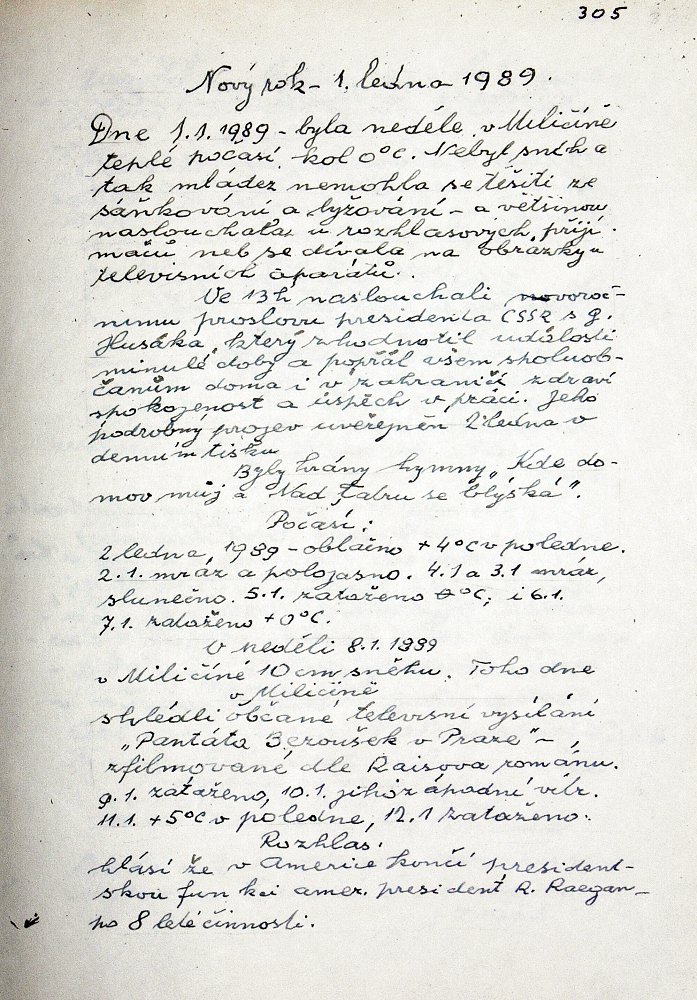 305
Nový rok - 1. ledna 1989.
Dne 1.1.1989 - byla neděle, v Miličíně
teplé počasí kol 0°C. Nebyl sníh a
tak mládež nemohla se těšiti ze
sáňkování a lyžování - a většinou
naslouchala u rozhlasových přijí-
mačů neb se dívala na obrázky u
televisních aparátů.
Ve 13h naslouchali novoroč-
nímu proslovu presidenta ČSSR s G.
Husáka, který zhodnotil události
minulé doby a popřál všem spoluob-
čanům doma i v zahraničí zdraví
spokojenost a úspěch v práci. Jeho
podrobný projev uveřejněn 2 ledna v
denním tisku
Byly hrány hymny „Kde do-
mov můj a Nad Tatru se blýská".
Počasí:
2 ledna, 1989 - oblačno +4°C v poledne.
2.1. mráz a polojasno. 4.1 a 3.1 mráz,
slunečno. 5.1. zataženo 0°C, i 6.1.
7.1. zataženo +0°C.
V neděli 8.1.1989
v Miličíně 10cm sněhu. Toho dne
v Miličíně
shlédli občané televisní vysílání
„Pantáta Bezoušek v Praze" -
zfilmované dle Raisova románu.
9.1. zataženo, 10.1. jihozápadní vítr.
11.1. +5°C v poledne, 12.1 zataženo.
Rozhlas:
hlásí že v Americe končí president-
skou funkci amer. president R. Raegan -
po 8 leté činnosti.